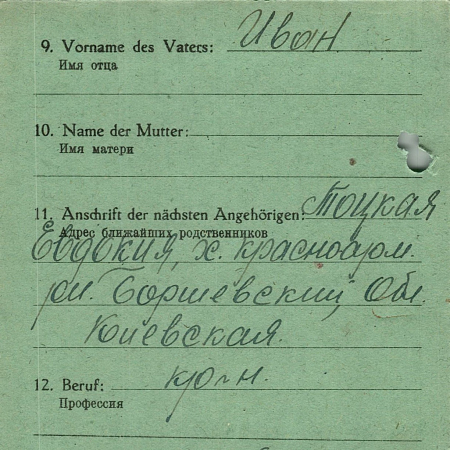 9. Vorname des Vaters: Иван
Имя отца
10. Name der Mutter:
Имя матери
11. Anschrift der nächsten Angehörigen: Тоцкая
Адрес ближайших родственников
Евдокия, х. красноарм.
Боршевский, Обл.
Киевская.
12. Beruf:
Профессия